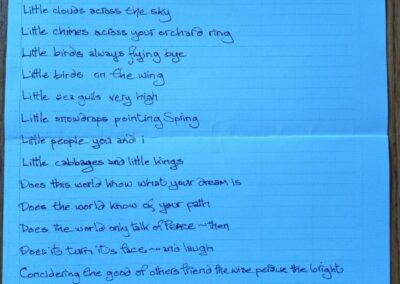 Little clouds across the sky
Little chimes across your orchard ring
Little birds always flying bye
Little birds on the wing
Little sea gulls very high
Little snowdraps pointing Spring
Little people you and i
Little cabbages and little kings
Does this world know what your dream is
Does the world know of your path
Does the world only talk of PEACE - then
Does it turn its face - and laugh
Concidering the good of others friend the wise perdue the bright